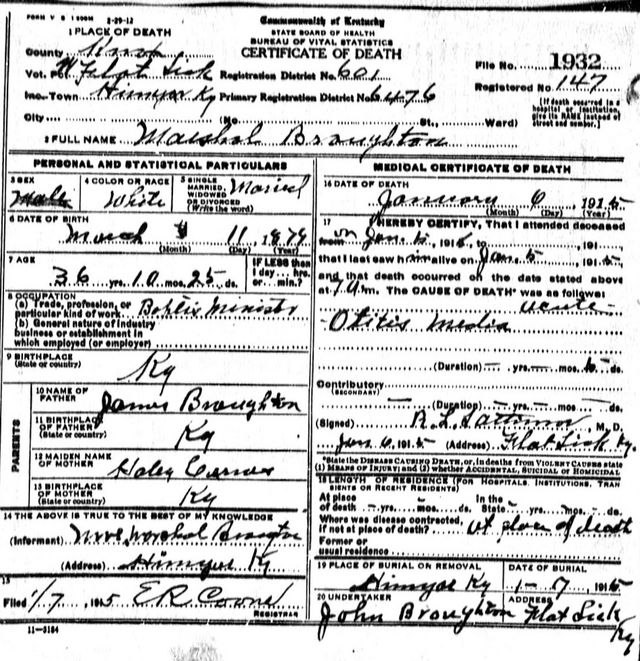 FORM V S 1 500M 2-29-12
Commonwealth of Kentucky
STATE BOARD OF HEALTH
BUREAU OF VITAL STATISTICS
CERTIFICATE OF DEATH
1 PLACE OF DEATH
County Knox
Vot. Pct. Flat Lick Registration District No. 601
Inc. Town Himyar Ky Primary Registration District No. 6476
City (No. St., Ward)
File No. 1932
Registered No. 147
[If death occurred in a hospital or institution, give its NAME instead of street and number.]
2 FULL NAME Marshal Broughton
PERSONAL AND STATISTICAL PARTICULARS
3 SEX Male
4 COLOR OR RACE White
5 SINGLE MARRIED, WIDOWED OR DIVORCED (Write the word) Maried
6 DATE OF BIRTH
March 11, 1879
(Month) (Day) (Year)
7 AGE
36 yrs. 10 mos. 25 ds.
IF LESS than 1 day .... hrs. or .... min.?
8 OCCUPATION
(a) Trade, profession, or particular kind of work Minister
(b) General nature of industry business or establishment in which employed (or employer)
9 BIRTHPLACE
(State or country) Ky
PARENTS
10 NAME OF FATHER James Broughton
11 BIRTHPLACE OF FATHER (State or country) Ky
12 MAIDEN NAME OF MOTHER
13 BIRTHPLACE OF MOTHER (State or country) Ky
14 THE ABOVE IS TRUE TO THE BEST OF MY KNOWLEDGE
(Informant) Mrs Marshal Broughton
(Address) Himyar Ky
15
Filed 1/7, 1915 E R Coone
REGISTRAR
11-3184
MEDICAL CERTIFICATE OF DEATH
16 DATE OF DEATH
January 6, 1915
(Month) (Day) (Year)
17 I HEREBY CERTIFY, That I attended deceased
from on Jan. 5, 1915, to , 191
that I last saw him alive on Jan. 5, 1915,
and that death occurred on the date stated above
at 7 a.m. The CAUSE OF DEATH* was as follows:
acute
Otitis Media
(Duration) — yrs. — mos. ds.
Contributory
(SECONDARY)
(Duration) — yrs. — mos. — ds.
(Signed) , M. D.
Jan. 6, 1915 (Address) Flat Lick Ky.
*State the DISEASE CAUSING DEATH, or, in deaths from VIOLENT CAUSES state (1) MEANS OF INJURY; and (2) whether ACCIDENTAL, SUICIDAL or HOMICIDAL
18 LENGTH OF RESIDENCE (FOR HOSPITALS, INSTITUTIONS, TRANSIENTS OR RECENT RESIDENTS)
At place of death — yrs. — mos. — ds. In the State — yrs. — mos. — ds.
Where was disease contracted, if not at place of death? at place of death
Former or usual residence
19 PLACE OF BURIAL OR REMOVAL DATE OF BURIAL
Himyar Ky 1-7 1915
20 UNDERTAKER ADDRESS
John Broughton Flat Lick Ky